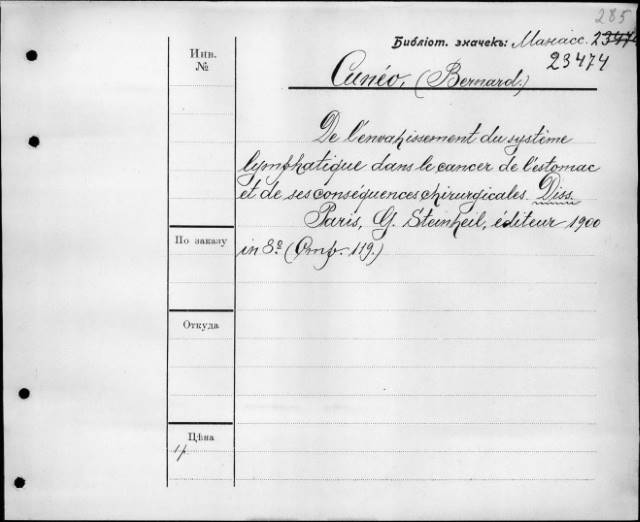 285
Библіот. значекъ: Манасс. 23474
23474
Инв.
№
Cunéo, (Bernard.)
De l'envahissement du système
lymphatique dans le cancer de l'estomac
et de ses conséquences chirurgicales. Diss.
Paris, G. Steinheil, éditeur 1900
По заказу
in 8º (Стр. 119.)
Откуда
Цѣна
1 р.